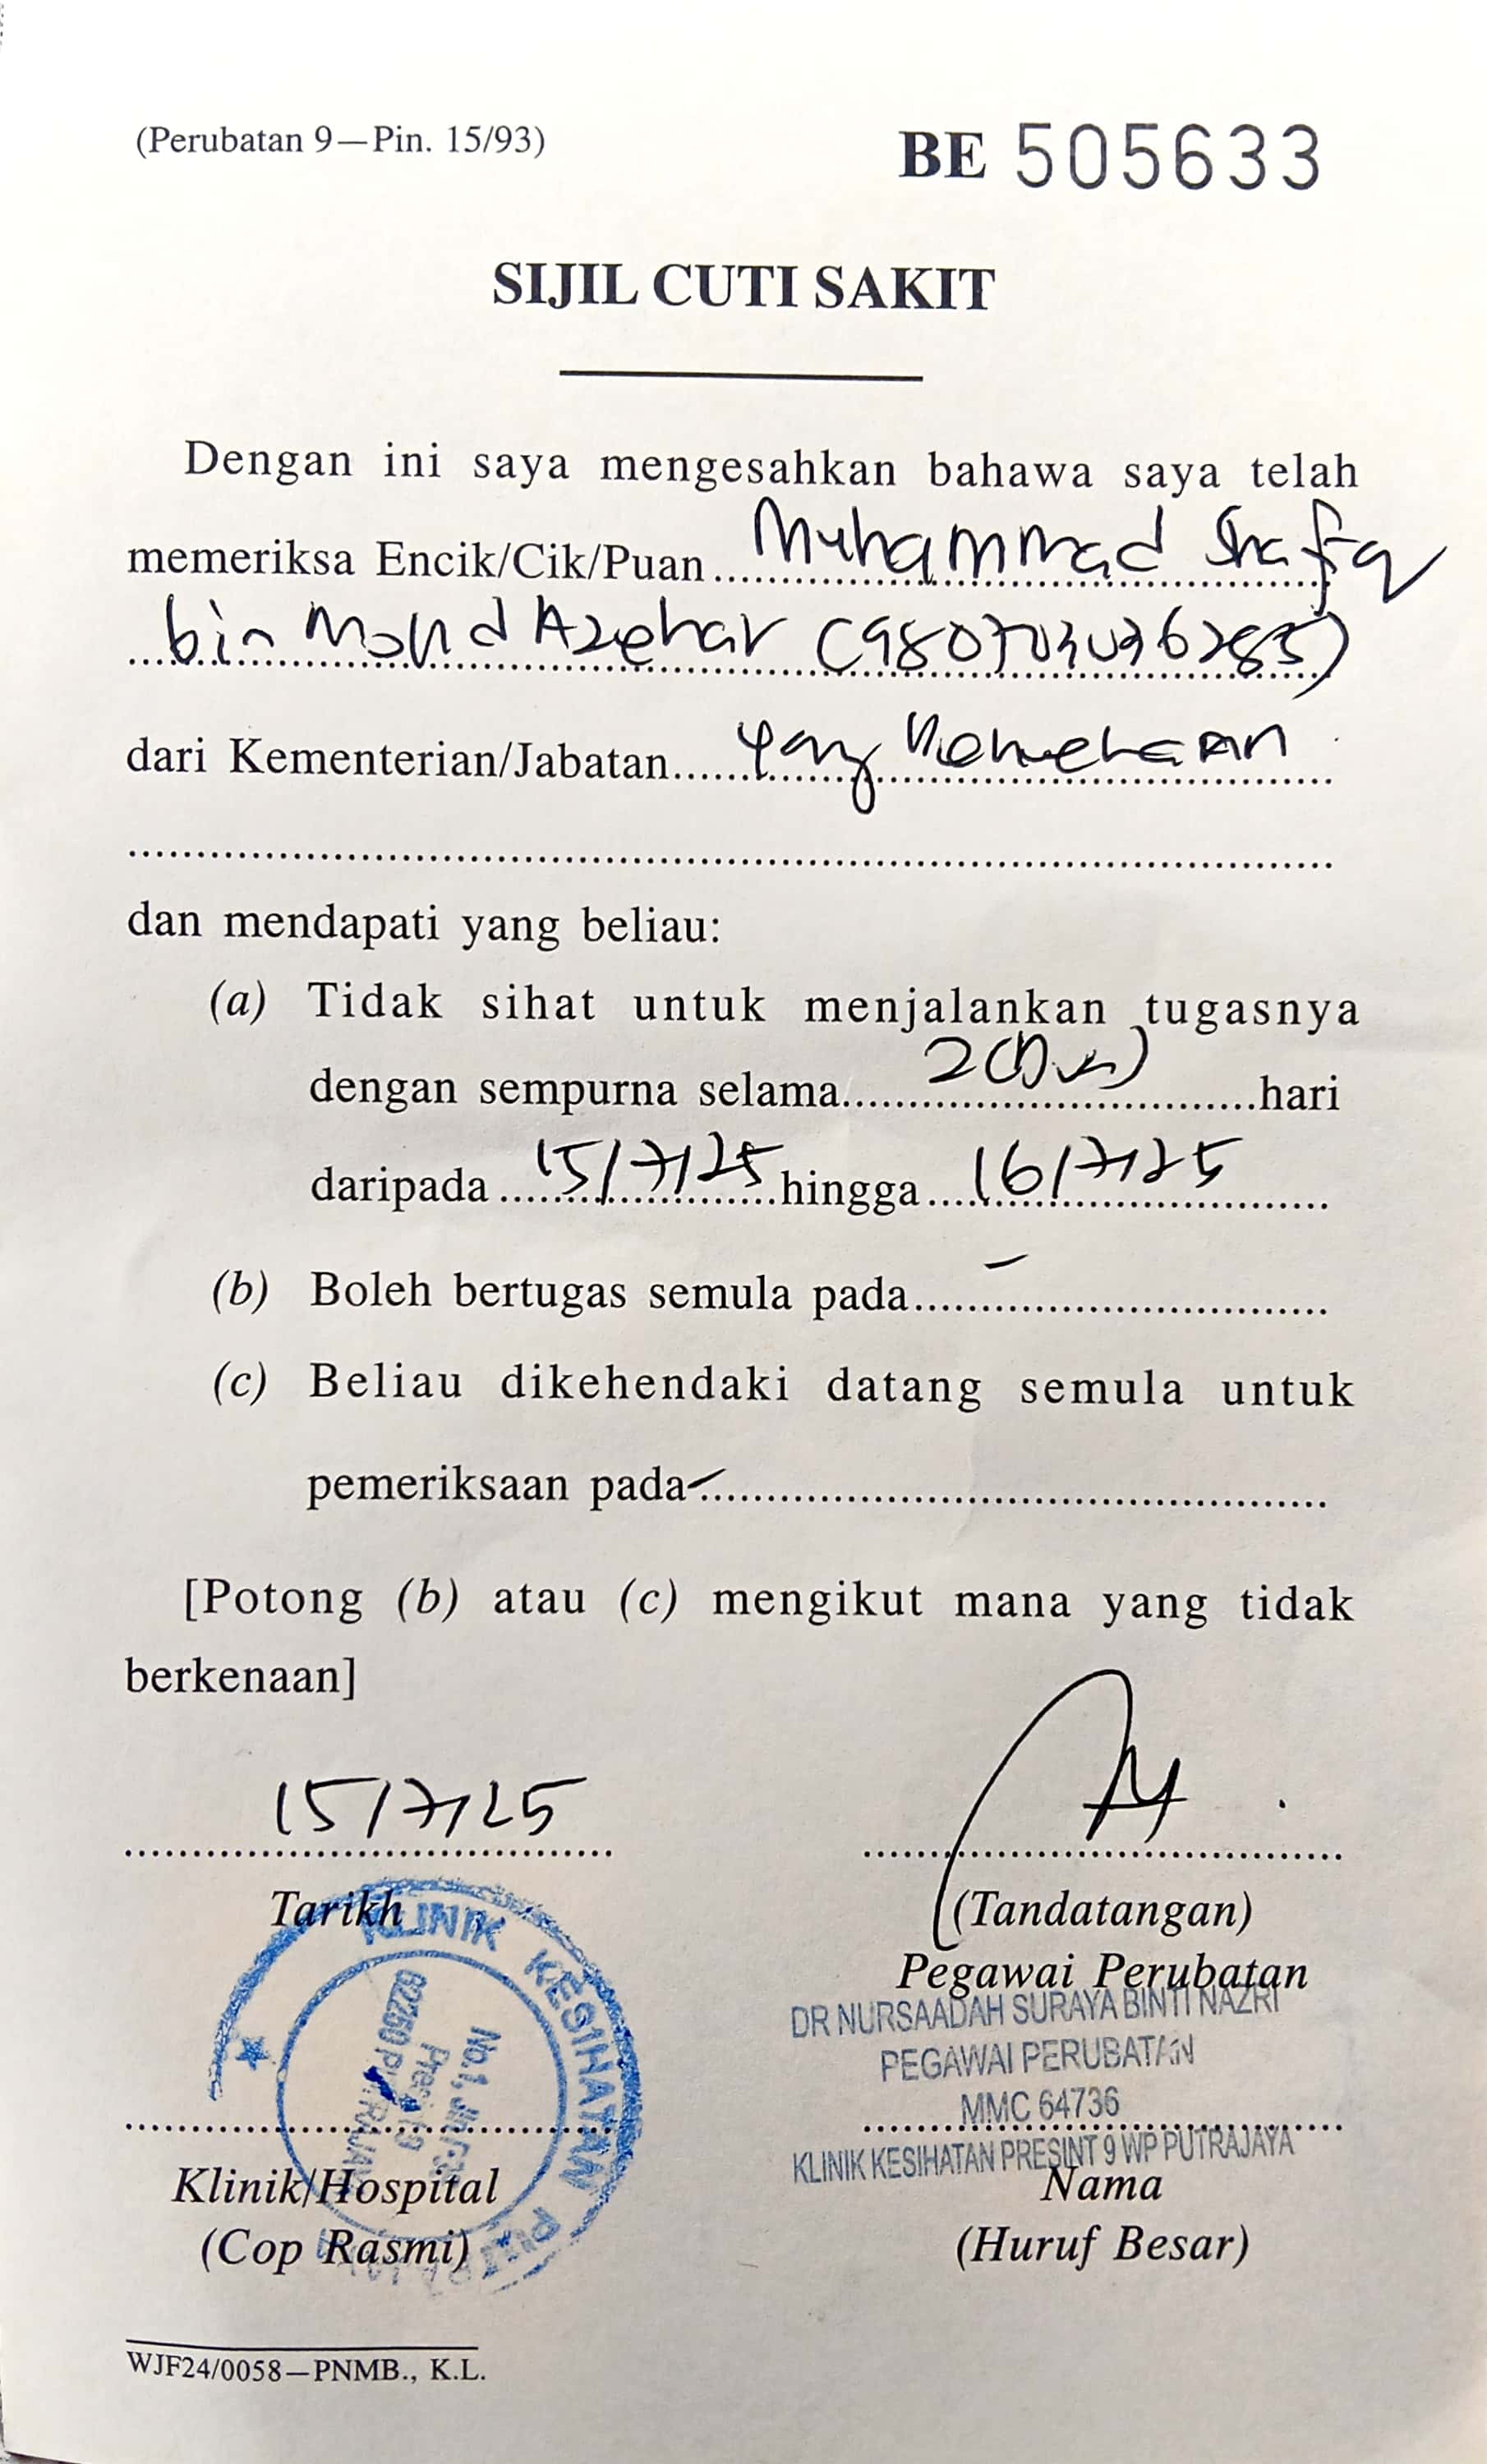 (Perubatan 9—Pin. 15/93)
BE 505633
SIJIL CUTI SAKIT
Dengan ini saya mengesahkan bahawa saya telah
memeriksa Encik/Cik/Puan Muhammad
bin Mohd Azehar
dari Kementerian/Jabatan yang
dan mendapati yang beliau:
(a) Tidak sihat untuk menjalankan tugasnya
dengan sempurna selama 2 (Dua) hari
daripada 15/7/25 hingga 16/7/25
(b) Boleh bertugas semula pada –
(c) Beliau dikehendaki datang semula untuk
pemeriksaan pada –
[Potong (b) atau (c) mengikut mana yang tidak
berkenaan]
15/7/25
Tarikh
(Tandatangan)
Pegawai Perubatan
DR NURSAADAH SURAYA BINTI NAZRI
PEGAWAI PERUBATAN
MMC 64736
KLINIK KESIHATAN PRESINT 9 WP PUTRAJAYA
Nama
(Huruf Besar)
KLINIK KESIHATAN
No.1, Jln
62250
Klinik/Hospital
(Cop Rasmi)
WJF24/0058—PNMB., K.L.